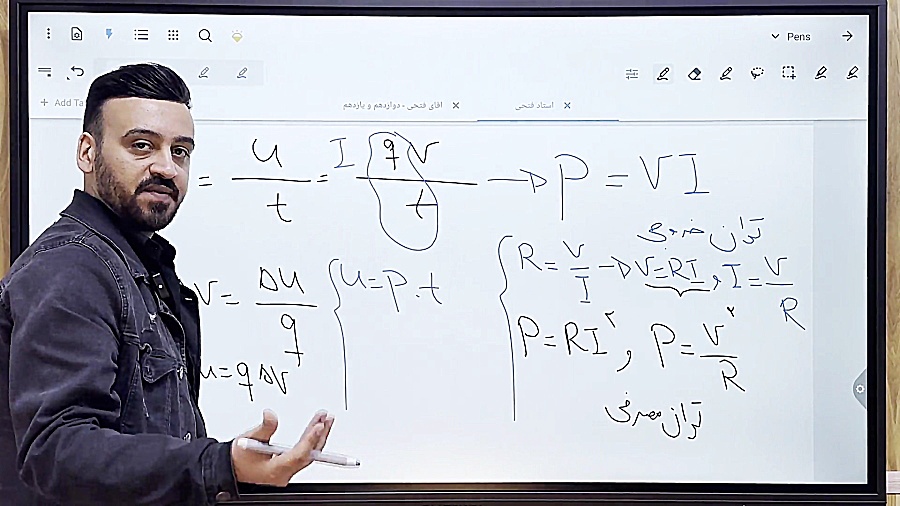 Pens
+ Add Ta
آقای فتحی - دوازدهم و یازدهم ×
استاد فتحی ×
= u/t = I qv/t → P = VI
توان خروجی
R = V/I → V=RI , I = V/R
V = Δu/q
u=p.t
P=RI² , P = V²/R
u=qΔV
توان مصرفی